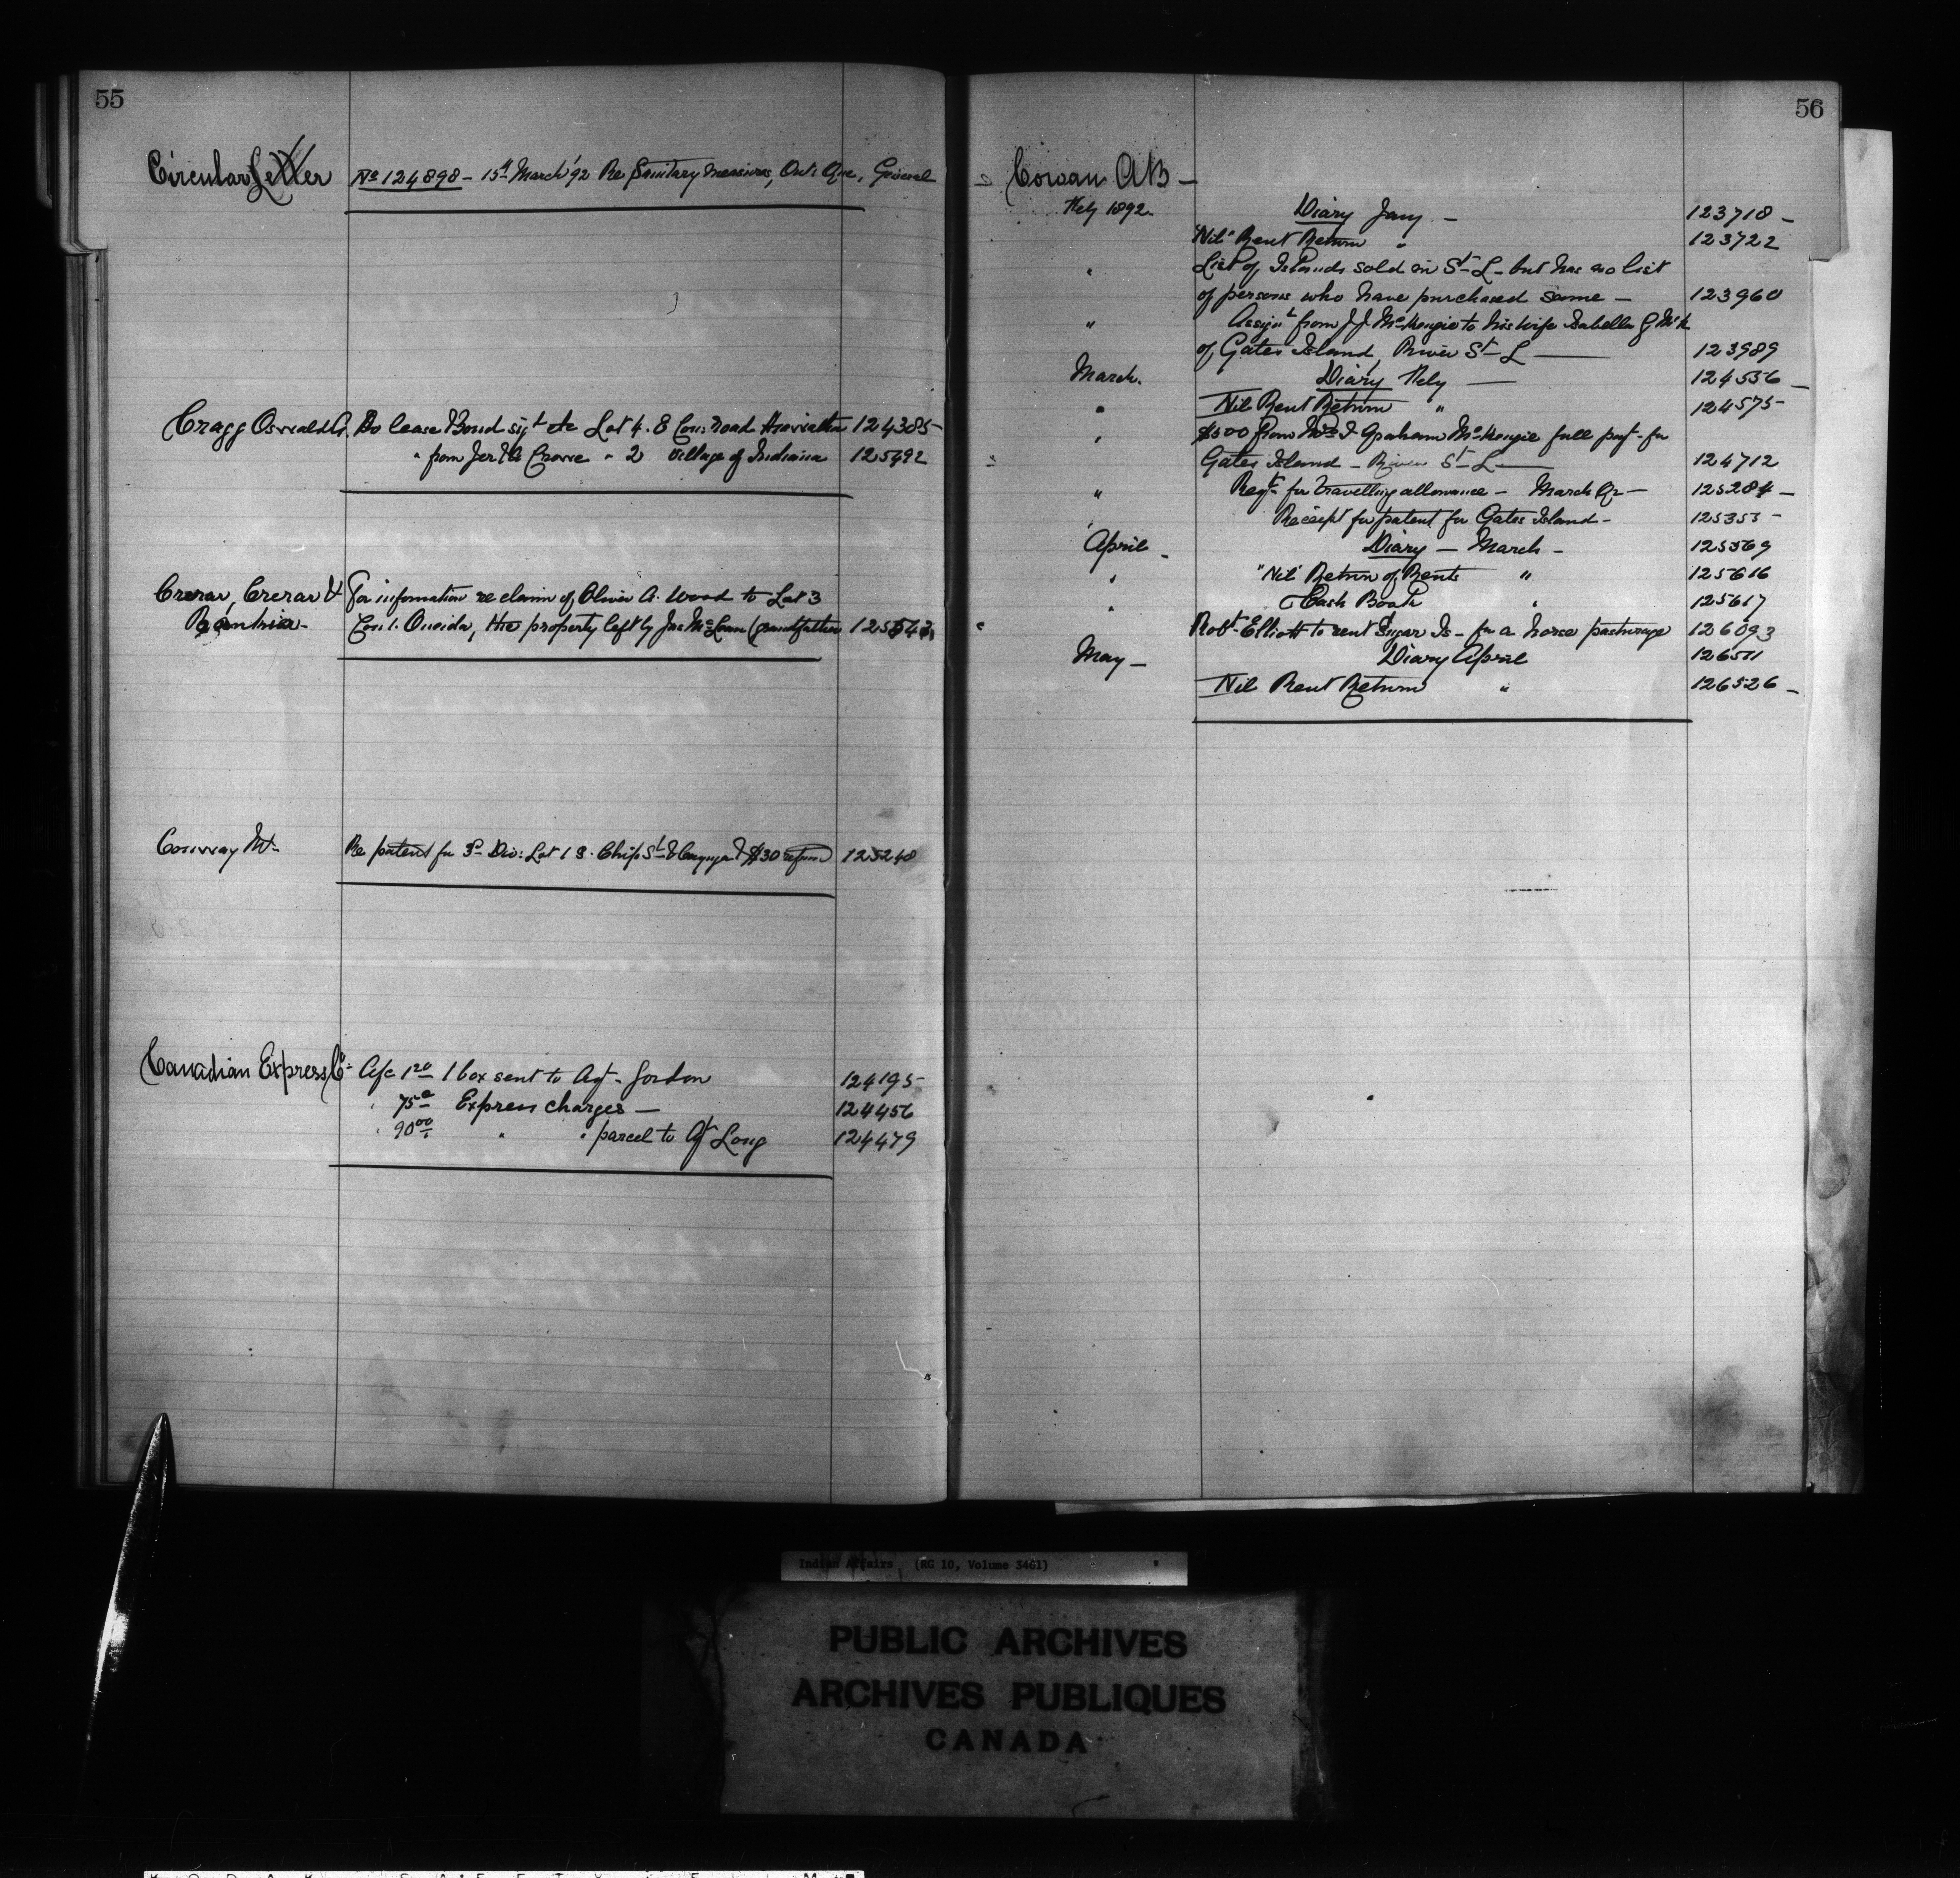 55
Circular Letter No 124898 - 15th March '92 Re Sanitary measures, Ont: Que, General
Cragg Oswald A. Do lease & Bond sigt etc Lot 4. E Con: Road 124385
" from Jer: Crowe " 2 Village of Indiana 125492
Crerar, Crerar & For information re claim of Oliver A. Wood to Lot 3
Con 1. Oneida, the property left by Jas McLean (grandfather
Conway Re patent for 3 Div: Lot 1 S. Chip St & Cayuga & $30 refund 125240
Canadian Express Co: A/c 1 20 1 box sent to Agt. Gordon 124195
" 75c Express charges — 124456
" 90 00 " " parcel to Agt Long 124479
56
Cowan AB —
Feby 1892. Diary Jany — 123718 –
"Nil" Rent Return " 123722
" List of Islands sold in St L – but has no list
of persons who have purchased same — 123960
" Assignt from J J McKenzie to his wife Isabella G McK
of Gates Island, River St L — 123989
March. Diary Feby — 124536 –
" Nil Rent Return " 124575
" $500 from Mrs I Graham McKenzie full payt – for
Gates Island – River St L — 124712
" Reqt for travelling allowance – March Qr — 125284 –
" Receipt for patent for Gates Island – 125353 –
April – Diary — March – 125569
" "Nil" Return of Rents " 125616
" Cash Book " 125617
" Robt Elliott to rent Sugar Is – for a horse pasturage 126093
May – Diary April 126511
Nil Rent Return " 126526 –
Indian Affairs (RG 10, Volume 3461)
PUBLIC ARCHIVES
ARCHIVES PUBLIQUES
CANADA